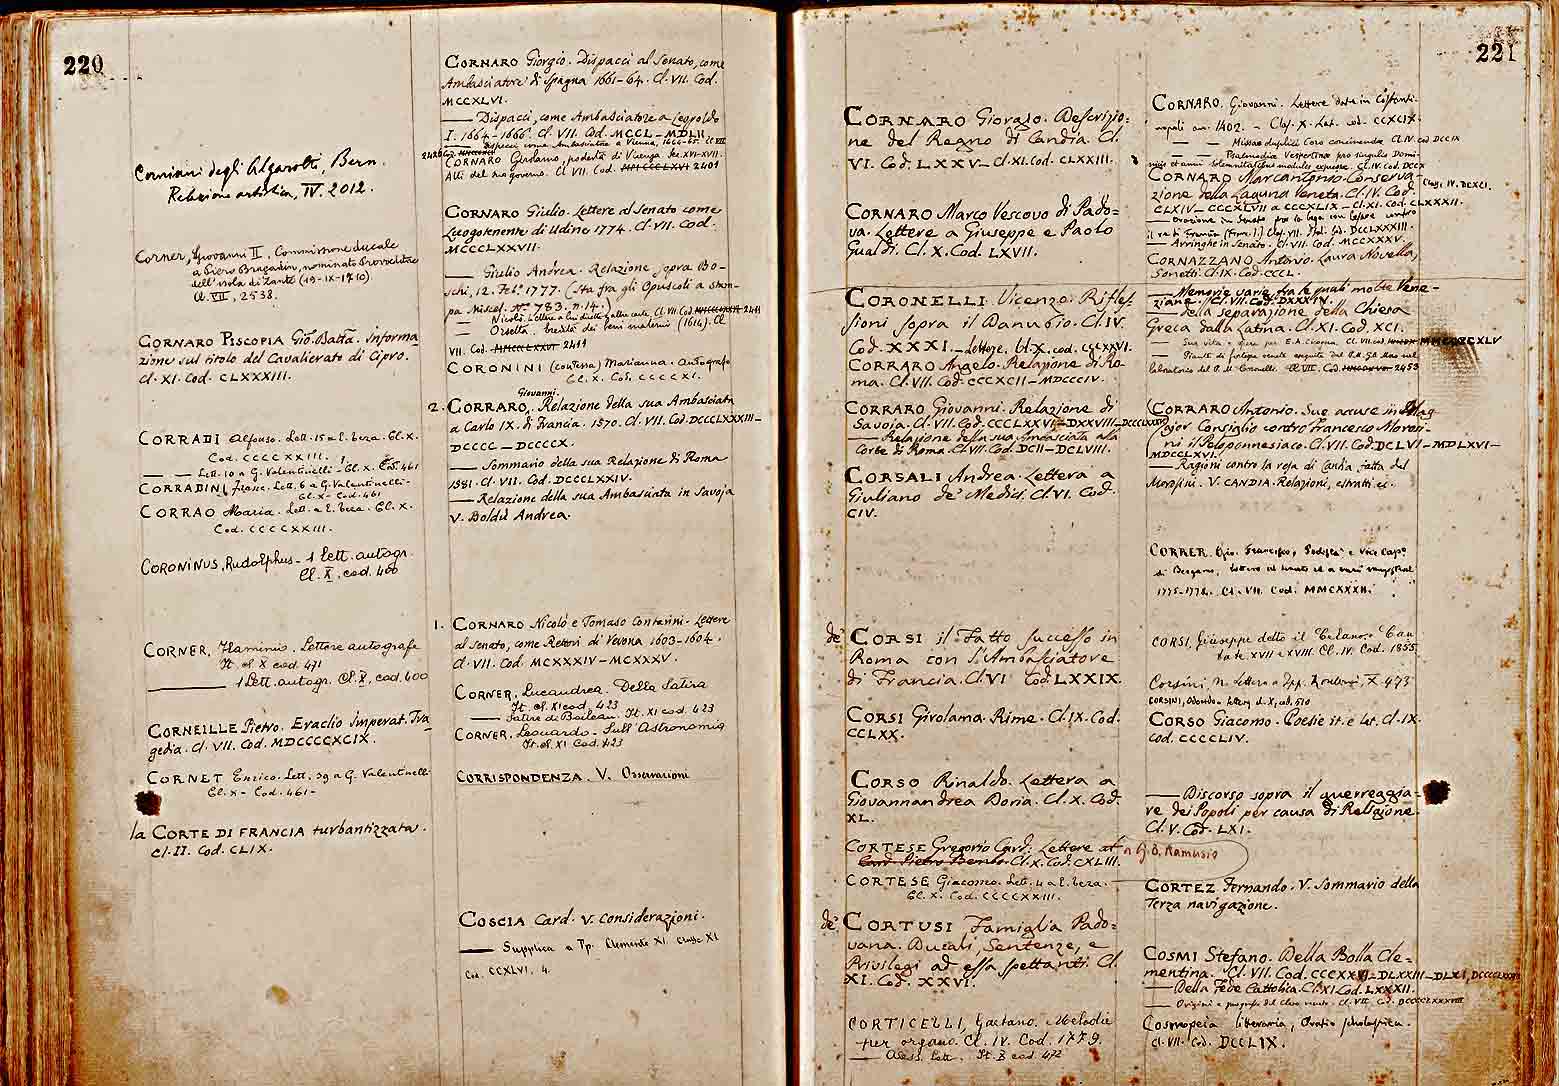 220
Corniani degli Algarotti, Bern.
Relazione artistica, IV. 2012.
Corner, Giovanni II, Commissione ducale
a Piero Bragadin, nominato Provveditore
dell'isola di Zante (19-IX-1710)
Cl. VII, 2538.
CORNARO PISCOPIA Gio. Batta. Informa
zione sul titolo del Cavalierato di Cipro.
Cl. XI. Cod. CLXXXIII.
CORRADI Alfonso. Lett. 15 a E. Teza. Cl. X.
Cod. CCCCXXIII.
— — Lett. 10 a G. Valentinelli - Cl. X. Cod. 461
CORRADINI Lett. 6 a G. Valentinelli -
Cl. X - Cod. 461
CORRAO Maria. Lett. a E. Teza. Cl. X.
Cod. CCCCXXIII.
CORONINUS, Rudolphus - 1 Lett. autogr.
Cl. X, cod. 400
CORNER, Flaminio. Lettere autografe
It. cl. X cod. 471
— 1 Lett. autogr. Cl. X, cod. 400
CORNEILLE Pietro. Eraclio Imperat. Tra
gedia. Cl. VII. Cod. MDCCCCXCIX.
CORNET Enrico. Lett. 39 a G. Valentinelli
Cl. X - Cod. 461 -
la CORTE DI FRANCIA turbantizzata.
Cl. II. Cod. CLIX.
CORNARO Giorgio. Dispacci al Senato, come
Ambasciatore di Spagna 1661-64. Cl. VII. Cod.
MCCXLVI.
— Dispacci, come Ambasciatore a Leopoldo
I. 1664-1666. Cl. VII. Cod. MCCL - MDLII
— Dispacci come Ambasciatore a Vienna, 1664-65. Cl. VII
CORNARO Girolamo, podestà di Vicenza Sec. XVI-XVII.
Atti del suo governo. Cl. VII. Cod. 2401
CORNARO Giulio. Lettere al Senato come
Luogotenente di Udine 1774. Cl. VII. Cod.
MCCCLXXVII.
— Giulio Andrea. Relazione sopra Bo-
schi, 12. Feb.º 1777. (Sta fra gli Opuscoli a stam-
pa Miscel. Nº 783. n. 14.)
— Nicolò. Lettere Cl. VII. Cod. 2411
— Orsetta. Eredità dei beni materni (1614). Cl
VII. Cod. 2411
CORONINI (contessa) Marianna. Autografo
Cl. X. Cod. CCCCXI.
Giovanni.
2. CORRARO, Relazione della sua Ambasciata
a Carlo IX. di Francia. 1570. Cl. VII. Cod. DCCCLXXXIII -
DCCCC - DCCCCX.
— Sommario della sua Relazione di Roma
1581. Cl. VII. Cod. DCCCLXXIV.
— Relazione della sua Ambasciata in Savoja
V. Boldù Andrea.
1. CORNARO Nicolò e Tomaso Contarini. Lettere
al Senato, come Rettori di Verona 1603-1604.
Cl. VII. Cod. MCXXXIV - MCXXXV.
CORNER, Lucandrea. Della Satira
It. cl. XI cod. 423
— Satire di Boileau. It. XI cod. 423
CORNER, Leonardo. Sull'Astronomia
It. cl. XI Cod. 423
CORRISPONDENZA. V. Osservazioni
COSCIA Card. V. Considerazioni.
— Supplica a Pp. Clemente XI. Classe XI
Cod. CCXLVI, 4.
221
CORNARO Giorgio. Descrizio=
ne del Regno di Candia. Cl.
VI. Cod. LXXV - Cl. XI. Cod. CLXXIII.
CORNARO Marco Vescovo di Pado=
va. Lettere a Giuseppe e Paolo
Gualdi. Cl. X. Cod. LXVII.
CORONELLI Vicenzo. Rifles
sioni sopra il Danubio. Cl. IV.
Cod. XXXI. - Lettere. Cl. X. cod. CCLXXVI.
CORRARO Angelo. Relazione di Ro=
ma. Cl. VII. Cod. CCCXCII - MDCCCIV.
CORRARO Giovanni. Relazione di
Savoia. Cl. VII. Cod. CCCLXXVI - DXXVIII -
— Relazione della sua Ambasciata alla
Corte di Roma. Cl. VII. Cod. DCII - DCLVIII.
CORSALI Andrea. Lettera a
Giuliano de' Medici. Cl. VI. Cod.
CIV.
de' CORSI il Fatto successo in
Roma con l'Ambasciatore
di Francia. Cl. VI Cod. LXXIX.
CORSI Girolama. Rime. Cl. IX. Cod.
CCLXX.
CORSO Rinaldo. Lettera a
Giovannandrea Doria. Cl. X. Cod.
XL.
CORTESE Gregorio Card: Lettere al a G. B. Ramusio
Card. Pietro Bembo. Cl. X. Cod. CXLIII.
CORTESE Giacomo. Lett. 4 a E. Teza.
Cl. X. Cod. CCCCXXIII.
de' CORTUSI Famiglia Pado=
vana. Ducali, Sentenze, e
Privilegi ad essa spettanti. Cl.
XI. Cod. XXVI.
CORTICELLI, Gaetano. Melodie
per organo. Cl. IV. Cod. 1779.
— Aless. Lett. It. X cod. 472
CORNARO. Giovanni. Lettere date in Costanti-
nopoli an. 1402. - Clas. X. Lat. cod. CCXCIX.
— — Missae duplici Coro concinendae Cl. IV. cod DCCIX
— Psalmodiae Vespertinae pro singulis Domi-
CORNARO Marcantonio. Conserva-
zione della Laguna Veneta. Cl. IV. Cod. Classe IV. DCXCI.
CLXIV - CCCXLVII a CCCXLIX - Cl. XI. Cod. CLXXXII.
— Orazione in Senato per la lega con Cesare contro
il re di Francia (Franc. I.) Clas. VII. Ital. Cod. DCCLXXXIII.
— Arringhe in Senato. Cl. VII. Cod. MCCXXXV.
CORNAZZANO Antonio. Laura Novella,
Sonetti. Cl. IX. Cod. CCCL.
— Memorie varie fra le quali molte Vene-
ziane. Cl. VII. Cod. DXXXIV.
— della separazione della Chiesa
Greca dalla Latina. Cl. XI. Cod. XCI.
— Sua vita e opere per E. A. Cicogna. Cl. VII cod.
— Piante di fortezze venete eseguite dal
laboratorio del P. M. Coronelli Cl. VII. Cod. 2453
CORRARO Antonio. Sue accuse in Mag
gior Consiglio contro Francesco Morosi=
ni il Peloponnesiaco. Cl. VII. Cod. DCLVI - MDLXVI -
MDCCLXVI.
— Ragioni contro la resa di Candia, fatta dal
Morosini. V. CANDIA. Relazioni, estratti ec.
CORRER, Gio. Francesco, Podestà e Vice Capº
di Bergamo, Lettere al Senato ed a varii magistrati
1775-1776. Cl. VII. Cod. MMCXXXII.
CORSI, Giuseppe detto il Celano. Can
tate XVII e XVIII. Cl. IV. Cod. 1855
CORSINI, Odoardo. Lettera cl. X, cod. 510
CORSO Giacomo. Poesie it. e lat. Cl. IX.
Cod. CCCCLIV.
— Discorso sopra il guerreggia=
re dei Popoli per causa di Religione.
Cl. V. Cod. LXI.
CORTEZ Fernando. V. Sommario della
Terza navigazione.
COSMI Stefano. Della Bolla Cle=
mentina. Cl. VII. Cod. CCCXXVI - DLXXIII - DLXI,
— Della Fede Cattolica. Cl. XI Cod. LXXXII.
Cosmopeia litteraria, Oratio philosophica.
Cl. VII. Cod. DCCLIX.